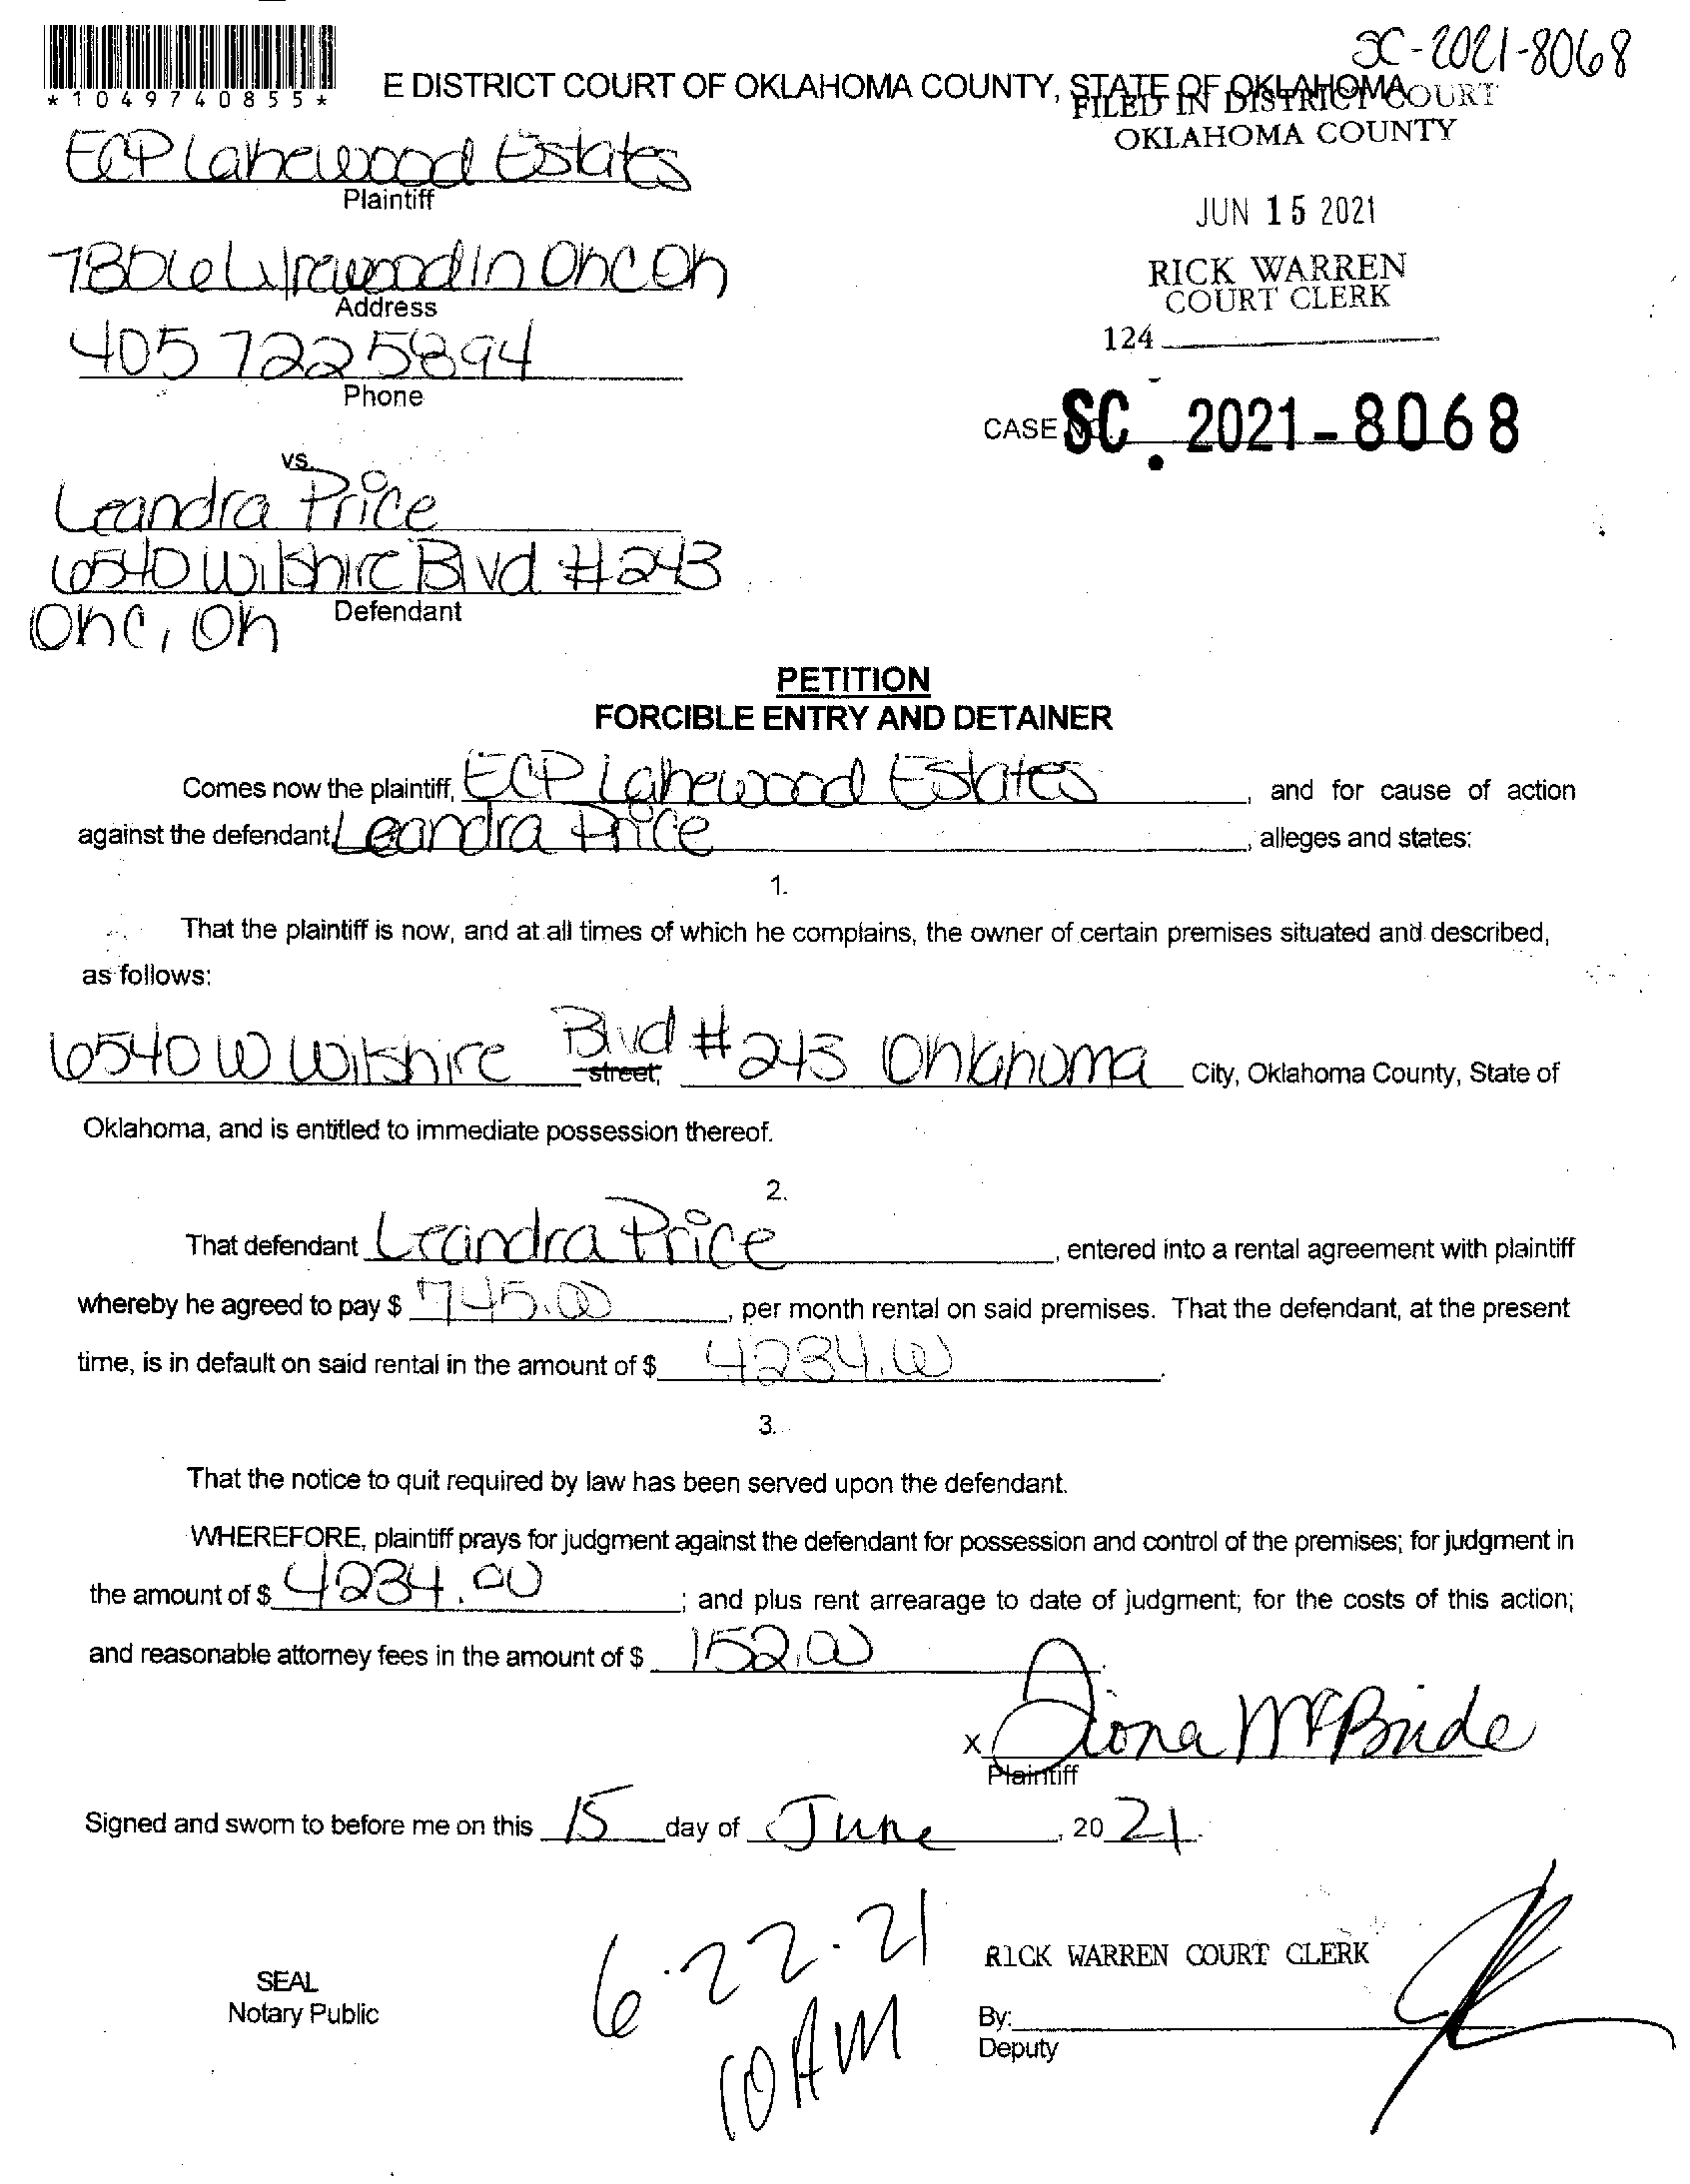 SC-2021-8068
*1049740855*
E DISTRICT COURT OF OKLAHOMA COUNTY, STATE OF OKLAHOMA
FILED IN DISTRICT COURT
OKLAHOMA COUNTY
JUN 15 2021
RICK WARREN
COURT CLERK
124
ECP Lakewood Estates
Plaintiff
OKC OK
Address
405 722 5894
Phone
CASE NO. SC 2021-8068
vs.
Leandra Price
6540 Wilshire Blvd #243
Defendant
OKC, OK
PETITION
FORCIBLE ENTRY AND DETAINER
Comes now the plaintiff, ECP Lakewood Estates, and for cause of action
against the defendant, Leandra Price, alleges and states:
1.
That the plaintiff is now, and at all times of which he complains, the owner of certain premises situated and described,
as follows:
6540 W Wilshire Blvd street, #243 Oklahoma City, Oklahoma County, State of
Oklahoma, and is entitled to immediate possession thereof.
2.
That defendant Leandra Price, entered into a rental agreement with plaintiff
whereby he agreed to pay $ 745.00, per month rental on said premises. That the defendant, at the present
time, is in default on said rental in the amount of $ 4234.00.
3.
That the notice to quit required by law has been served upon the defendant.
WHEREFORE, plaintiff prays for judgment against the defendant for possession and control of the premises; for judgment in
the amount of $ 4234.00; and plus rent arrearage to date of judgment; for the costs of this action;
and reasonable attorney fees in the amount of $ 152.00
x Diona McBride
Plaintiff
Signed and sworn to before me on this 15 day of June, 20 21.
6.22.21
10 AM
SEAL
Notary Public
RICK WARREN COURT CLERK
By:
Deputy